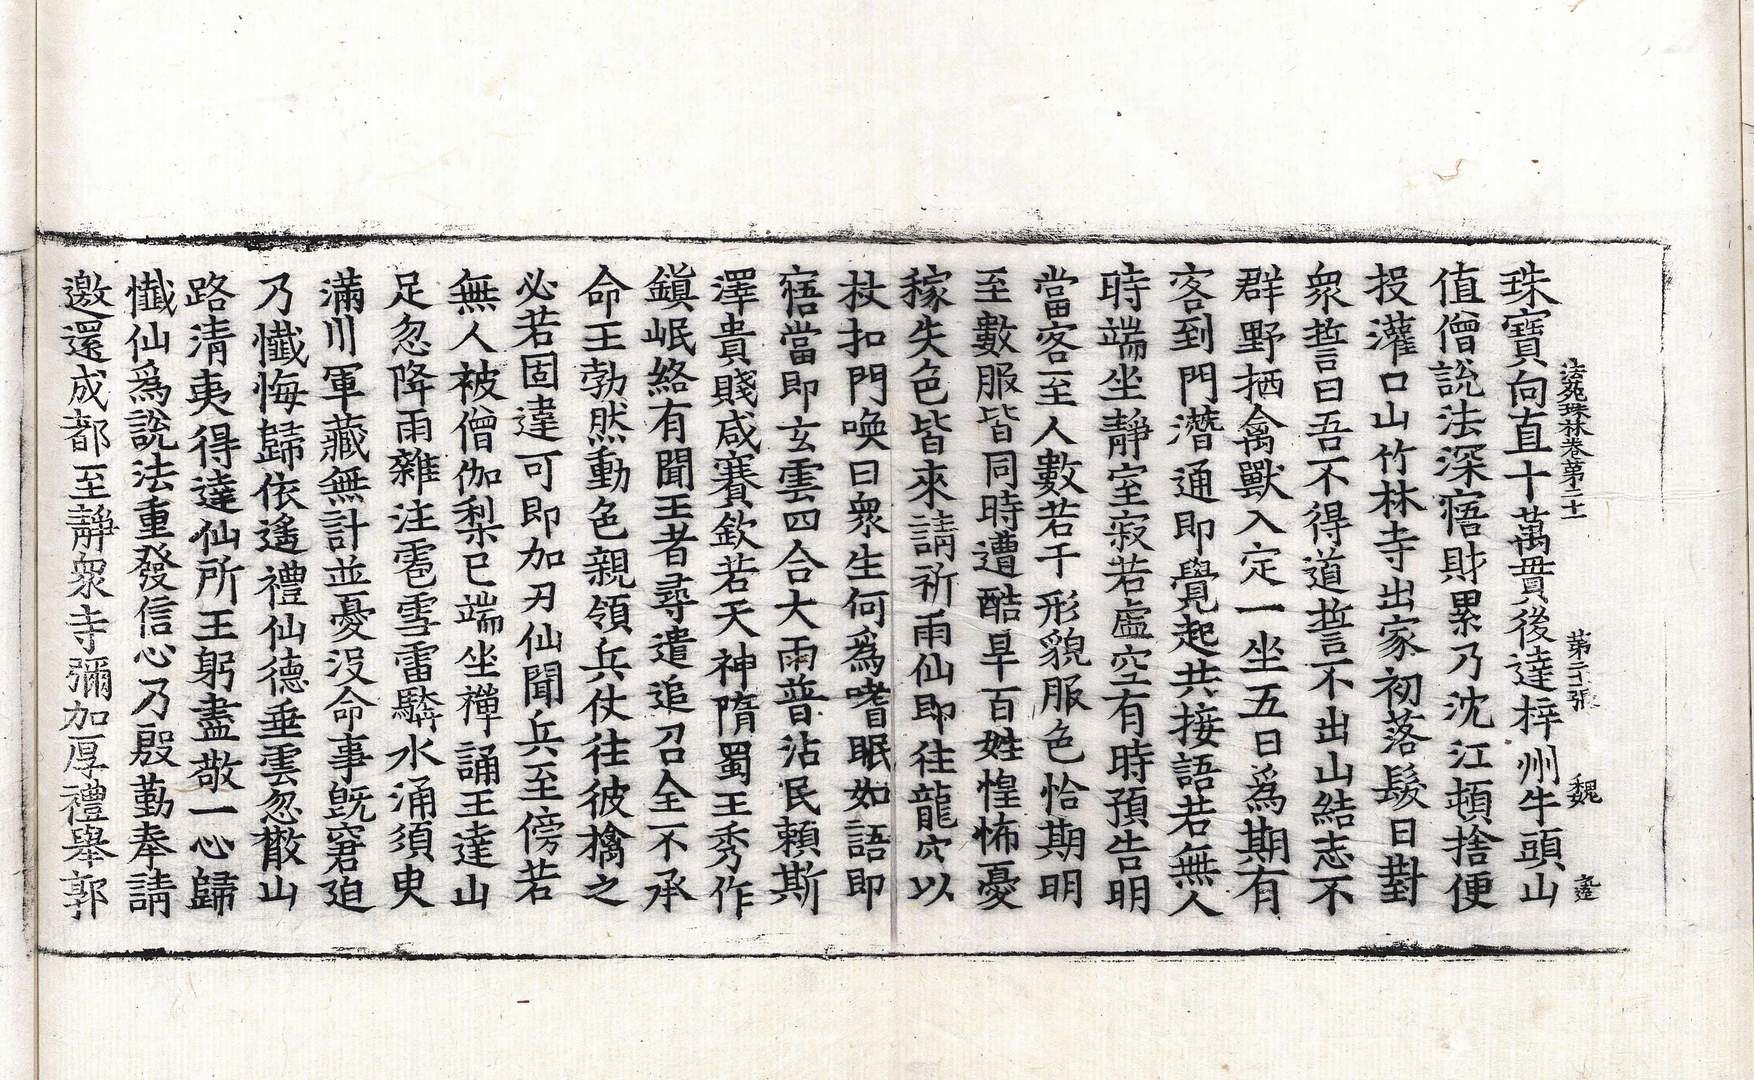 法苑珠林卷第二十一 第二十張 魏
珠寶向直十萬貫後達梓州牛頭山
值僧說法深寤財累乃沈江頓捨便
投灌口山竹林寺出家初落髮日對
衆誓曰吾不得道誓不出山結志不
群野栖禽獸入定一坐五日爲期有
客到門潛通即覺起共接語若無人
時端坐靜室寂若虛空有時預告明
當客至人數若干形貌服色恰期明
至數服皆同時遭酷旱百姓惶怖憂
稼失色皆來請祈雨仙即往龍穴以
杖扣門喚曰衆生何爲嗜眠如語即
寤當即玄雲四合大雨普沾民賴斯
澤貴賤咸賽欽若天神隋蜀王秀作
鎮岷絡有聞王者尋遣追召全不承
命王勃然動色親領兵仗往彼擒之
必若固違可即加刃仙聞兵至傍若
無人被僧伽梨已端坐禪誦王達山
足忽降雨雜注雹雪雷驎水涌須臾
滿川軍藏無計並憂沒命事既窘迫
乃懺悔歸依遙禮仙德垂雲忽散山
路清夷得達仙所王躬盡敬一心歸
懺仙爲說法重發信心乃殷勤奉請
邀還成都至靜衆寺彌加厚禮舉郭